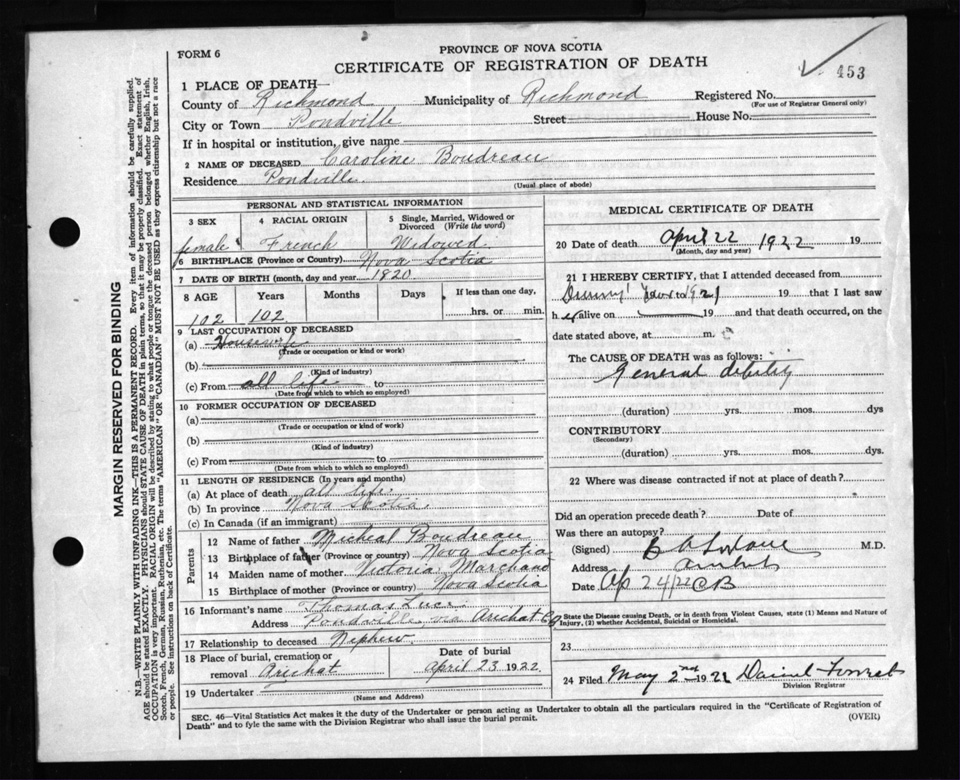 FORM 6
PROVINCE OF NOVA SCOTIA
CERTIFICATE OF REGISTRATION OF DEATH
453
MARGIN RESERVED FOR BINDING
N.B.—WRITE PLAINLY WITH UNFADING INK—THIS IS A PERMANENT RECORD. Every item of information should be carefully supplied.
AGE should be stated EXACTLY. PHYSICIANS should STATE CAUSE OF DEATH in plain terms, so that it may be properly classified. Exact statement of
OCCUPATION is very important. RACIAL ORIGIN will be described by stating to what people or tongue the deceased person belonged whether English, Irish,
Scotch, French, German, Russian, Ruthenian, etc. The terms "AMERICAN" OR "CANADIAN" MUST NOT BE USED as they express citizenship but not a race
or people. See instructions on back of Certificate.
1 PLACE OF DEATH—
County of Richmond Municipality of Richmond Registered No.
(For use of Registrar General only)
City or Town Pondville Street House No.
If in hospital or institution, give name
2 NAME OF DECEASED Caroline Boudreau
Residence Pondville
(Usual place of abode)
PERSONAL AND STATISTICAL INFORMATION
3 SEX 4 RACIAL ORIGIN 5 Single, Married, Widowed or
Divorced (Write the word)
female French Widowed
6 BIRTHPLACE (Province or Country) Nova Scotia
7 DATE OF BIRTH (month, day and year) 1820
8 AGE Years Months Days If less than one day,
102 102 hrs. or min.
9 LAST OCCUPATION OF DECEASED
(a) Housewife
(Trade or occupation or kind or work)
(b)
(Kind of industry)
(c) From all life to
(Date from which to which so employed)
10 FORMER OCCUPATION OF DECEASED
(a)
(Trade or occupation or kind of work)
(b)
(Kind of industry)
(c) From to
(Date from which to which so employed)
11 LENGTH OF RESIDENCE (In years and months)
(a) At place of death all life
(b) In province Nova Scotia
(c) In Canada (if an immigrant)
Parents
12 Name of father Micheal Boudreau
13 Birthplace of father (Province or country) Nova Scotia
14 Maiden name of mother Victoria Marchand
15 Birthplace of mother (Province or country) Nova Scotia
16 Informant's name Thomas
Address Pondville via Arichat
17 Relationship to deceased Nephew
18 Place of burial, cremation or Date of burial
removal Arichat April 23 1922
19 Undertaker
(Name and Address)
MEDICAL CERTIFICATE OF DEATH
20 Date of death April 22 1922 19
(Month, day and year)
21 I HEREBY CERTIFY, that I attended deceased from
1921 19 that I last saw
her alive on 19 and that death occurred, on the
date stated above, at m.
The CAUSE OF DEATH was as follows:
General debility
(duration) yrs. mos. dys
CONTRIBUTORY
(Secondary)
(duration) yrs. mos. dys.
22 Where was disease contracted if not at place of death?
Did an operation precede death? Date of
Was there an autopsy?
(Signed) M.D.
Address Arichat
Date Ap 24/22
State the Disease causing Death, or in death from Violent Causes, state (1) Means and Nature of
Injury, (2) whether Accidental, Suicidal or Homicidal.
23
24 Filed May 2nd 1922 Daniel
Division Registrar
SEC. 46—Vital Statistics Act makes it the duty of the Undertaker or person acting as Undertaker to obtain all the particulars required in the "Certificate of Registration of
Death" and to fyle the same with the Division Registrar who shall issue the burial permit.
(OVER)